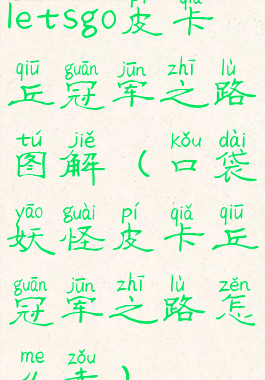 letsgo皮卡
qiū guān jūn zhī lù
丘冠军之路
tú jiě kǒu dài
图解（口袋
yāo guài pí qiǎ qiū
妖怪皮卡丘
guān jūn zhī lù zěn
冠军之路怎
me zǒu